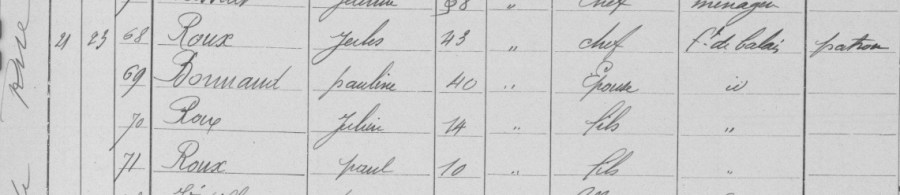 98 " chef ménagère
21 23 68 Roux Jules 43 " chef f. de balais patron
69 Bonnaud pauline 40 " Epouse id
70 Roux Julien 14 " fils "
71 Roux paul 10 " fils "
rue